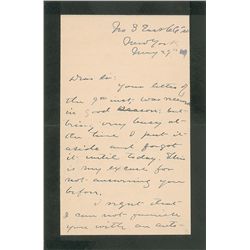 No 3 East 66th St
New York
May 29th
Dear Sir:
Your letter of
the 9th inst. was received
in good season; but
being very busy at
the time I put it
aside and forgot
it until today. This
is my excuse for
not answering you
before.
I regret that
I can not furnish
you with an auto-